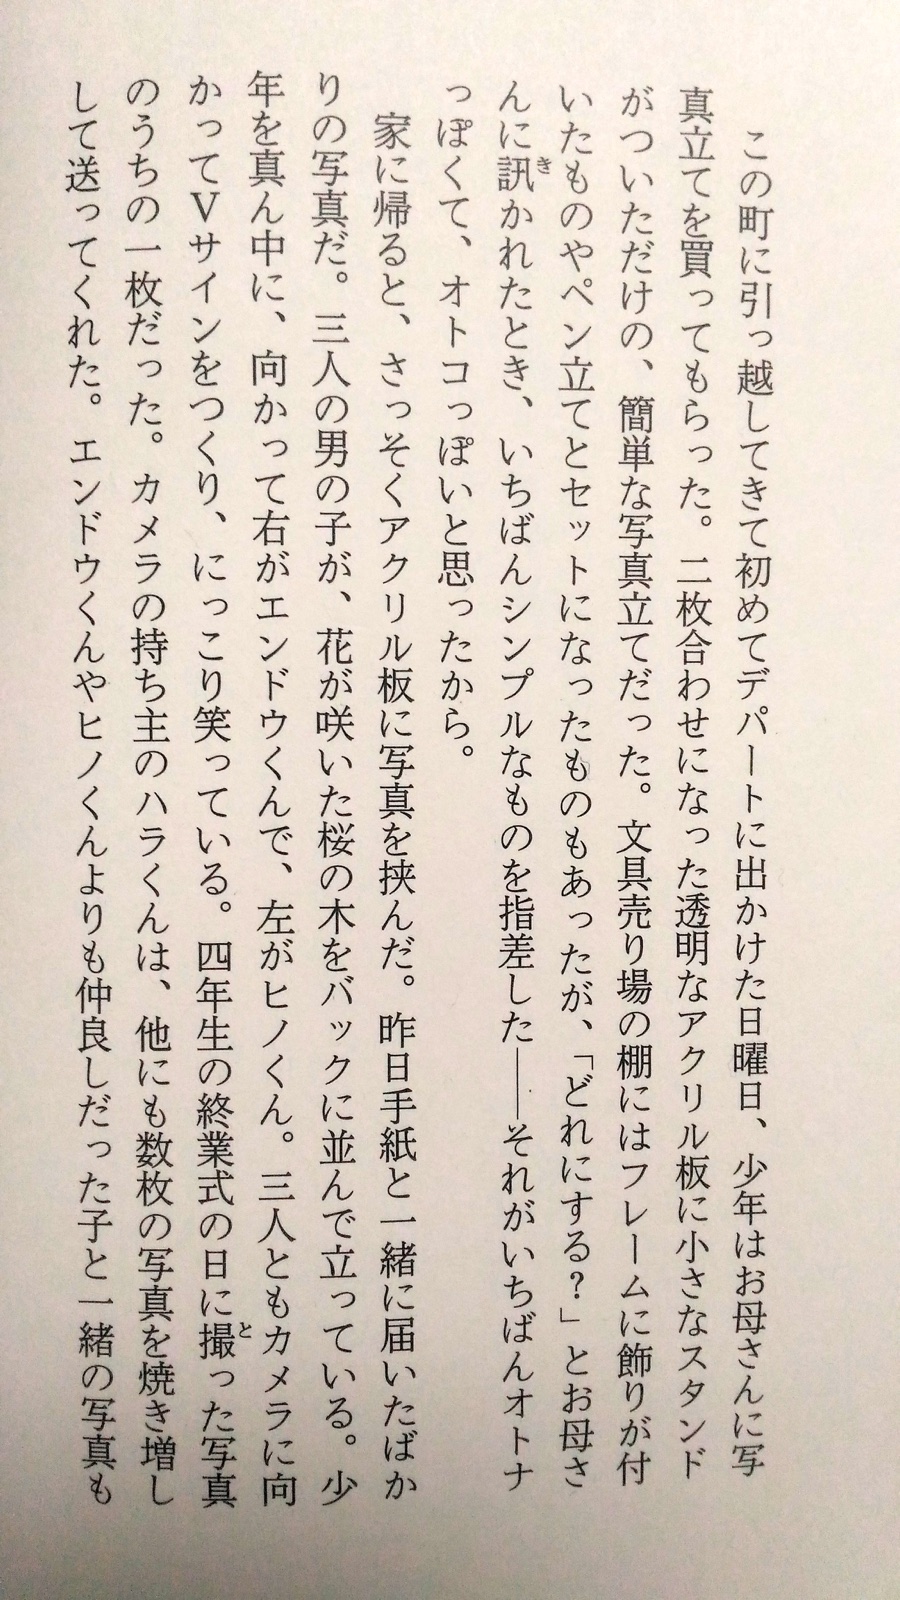 この町に引っ越してきて初めてデパートに出かけた日曜日、少年はお母さんに写
真立てを買ってもらった。二枚合わせになった透明なアクリル板に小さなスタンド
がついただけの、簡単な写真立てだった。文具売り場の棚にはフレームに飾りが付
いたものやペン立てとセットになったものもあったが、「どれにする?」とお母さ
んに訊かれたとき、いちばんシンプルなものを指差した――それがいちばんオトナ
っぽくて、オトコっぽいと思ったから。
家に帰ると、さっそくアクリル板に写真を挟んだ。昨日手紙と一緒に届いたばか
りの写真だ。三人の男の子が、花が咲いた桜の木をバックに並んで立っている。少
年を真ん中に、向かって右がエンドウくんで、左がヒノくん。三人ともカメラに向
かってVサインをつくり、にっこり笑っている。四年生の終業式の日に撮った写真
のうちの一枚だった。カメラの持ち主のハラくんは、他にも数枚の写真を焼き増し
して送ってくれた。エンドウくんやヒノくんよりも仲良しだった子と一緒の写真も